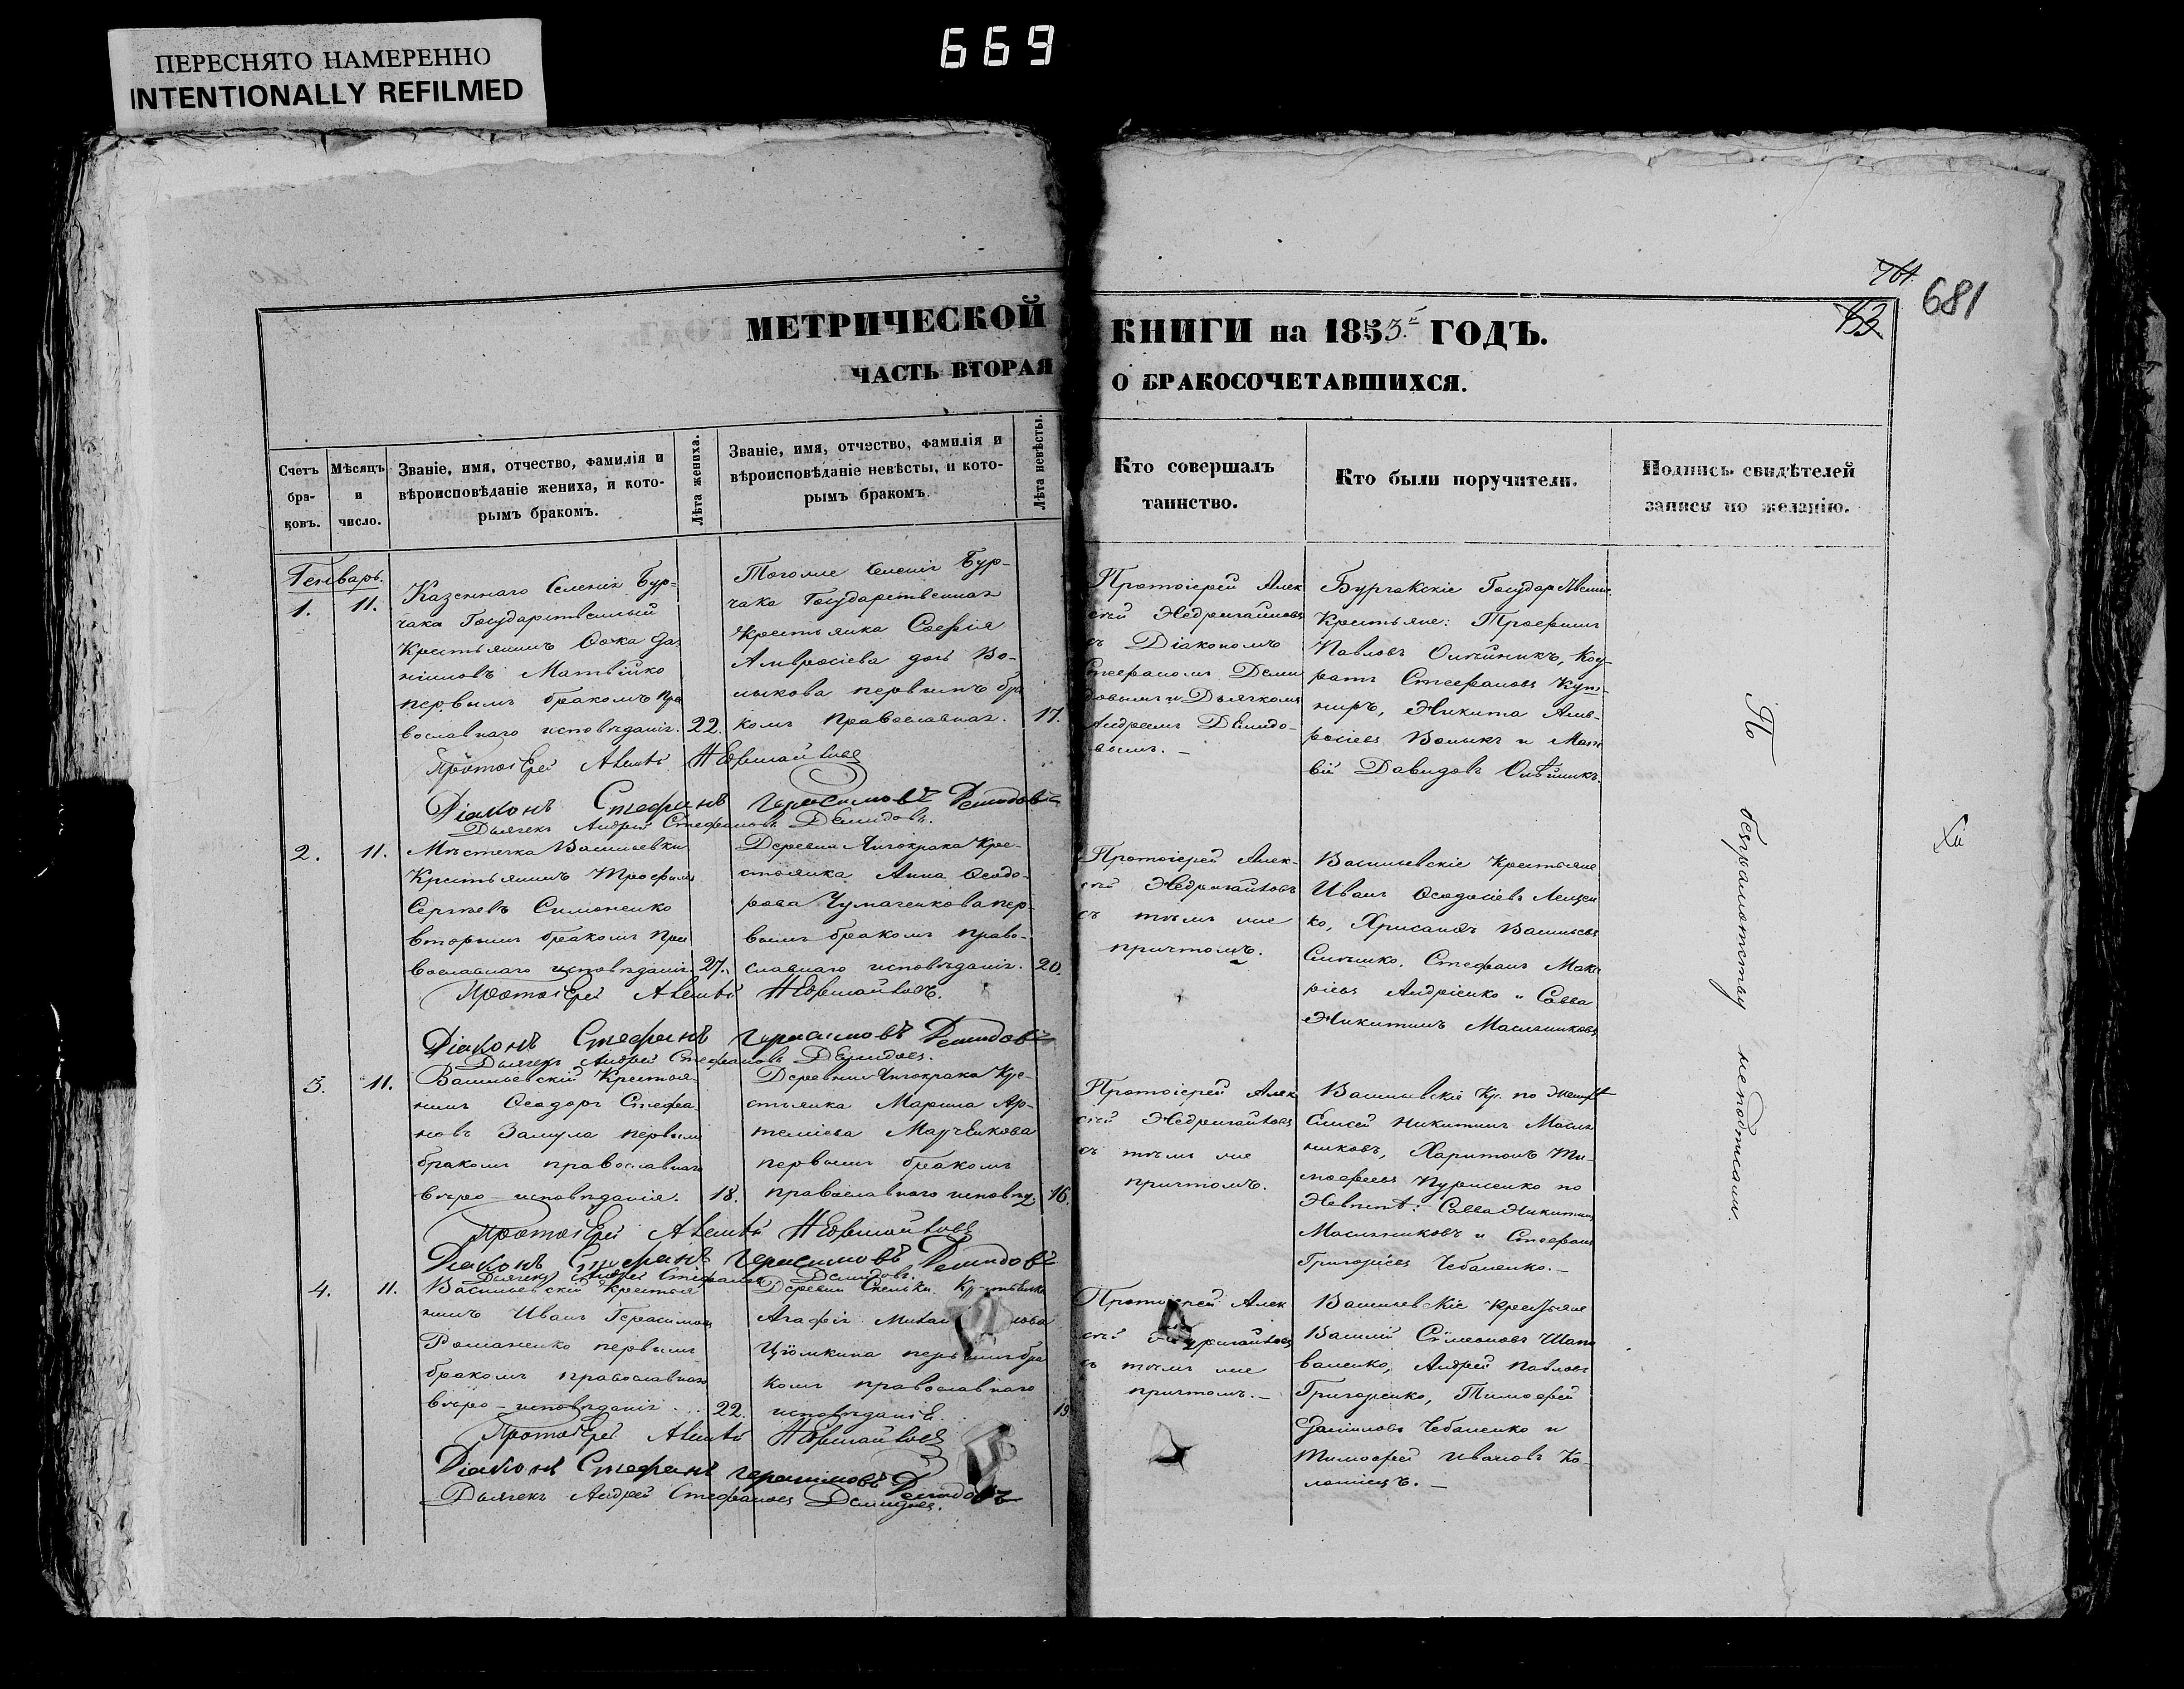 669
ПЕРЕСНЯТО НАМЕРЕННО
INTENTIONALLY REFILMED
681
МЕТРИЧЕСКОЙ КНИГИ на 1853й ГОДЪ.
ЧАСТЬ ВТОРАЯ О БРАКОСОЧЕТАВШИХСЯ.
Счетъ
бра-
ковъ.
Мѣсяцъ
и
число.
Званіе, имя, отчество, фамилія и
вѣроисповѣданіе жениха, и кото-
рымъ бракомъ.
Лѣта жениха.
Званіе, имя, отчество, фамилія и
вѣроисповѣданіе невѣсты, и кото-
рымъ бракомъ.
Лѣта невѣсты.
Кто совершалъ
таинство.
Кто были поручители.
Подпись свидѣтелей
записи по желанію.
Генварь.
1.
11.
Казеннаго Селенія Бур-
чака Государственный
Крестьянинъ Да-
ніиловъ Матвійко
первымъ бракомъ пра
вославнаго исповѣданія.
22.
Тогоже Селенія Бур-
чака Государственная
Крестьянка Софія
Амвросіева дочь Во-
лыкова первымъ бра
комъ Православная.
17.
Протоіерей Алек
сѣй Недригайловъ
съ Діакономъ
Стефаномъ Деми
довымъ и Дьячкомъ
Андреемъ Демидо-
вымъ. -
Бурчакскіе Государствен.
Крестьяне: Трофимъ
Павловъ Олѣйникъ, Код-
ратъ Стефановъ Куш-
ниръ, Никита Амв-
росіевъ Волыкъ и Мат
вій Давидовъ Олѣйникъ.
Протоіерей Алексѣй Недригайловъ
Діаконъ Стефанъ Герасимовъ Демидовъ
Дьячекъ Андрей Стефановъ Демидовъ.
2.
11.
Мѣстечка Васильевки
Крестьянинъ Трофимъ
Сергѣевъ Симоненко
вторымъ бракомъ Пра
вославнаго исповѣданія.
27.
Деревни Янчокрака Кре-
стьянка Анна Ѳеодо-
рова Чумаченкова пер-
вымъ бракомъ право-
славнаго исповѣданія.
20.
Протоіерей Алек-
сѣй Недригайловъ
съ тѣмъ же
причтомъ.
Васильевскіе Крестьяне
Иванъ Ѳеодосіевъ Лещен
ко, Хрисанѳъ Васильевъ
Стефанъ Мака
ріевъ Андріенко и Савва
Никитинъ Масльниковъ
Протоіерей Алексѣй Недригайловъ.
Діаконъ Стефанъ Герасимовъ Демидовъ
Дьячекъ Андрей Стефановъ Демидовъ.
3.
11.
Васильевскій Крестья-
нинъ Ѳеодоръ Стефа
новъ Замула первымъ
бракомъ православнаго
вѣро-исповѣданія.
18.
Деревни Янчокрака Кре-
стьянка Марина Ар-
теміева Марченкова
первымъ бракомъ
православнаго исповѣд.
16.
Протоіерей Алек
сѣй Недригайловъ
съ тѣмъ же
причтомъ.
Васильевскіе Кр. по жениху
Елисей Никитинъ Масль
никовъ, Харитонъ Ти-
мофеевъ по
Невѣстѣ: Савва Никитинъ
Масльниковъ и Стефанъ
Григоріевъ Чебаненко. -
Протоіерей Алексѣй Недригайловъ
Діаконъ Стефанъ Герасимовъ Демидовъ
Дьячекъ Андрей Стефановъ Демидовъ.
4.
11.
Васильевскій Крестья
нинъ Иванъ Герасимовъ
Романенко первымъ
бракомъ православнаго
вѣро-исповѣданія ...
22.
Деревни Скельки Крестьянка
Агафія Миха
Цюмкина первымъ бра
комъ православнаго
исповѣданія.
19
Протоіерей Алек
сѣй Недригайловъ
съ тѣмъ же
причтомъ. -
Васильевскіе Крестьяне
Василій Симеоновъ Шапо
валенко, Андрей Павловъ
Григоренко, Тимофей
Даниловъ Чебаненко и
Тимофей Ивановъ Ко-
ломіецъ. -
Протоіерей Алексѣй Недригайловъ
Діаконъ Стефанъ Герасимовъ Демидовъ
Дьячекъ Андрей Стефановъ Демидовъ.
По безграмотству неподписали.